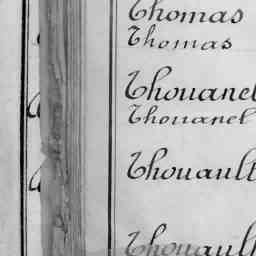 Thomas
Thomas
Thouanel
Thouanel
Thouault
Thouault